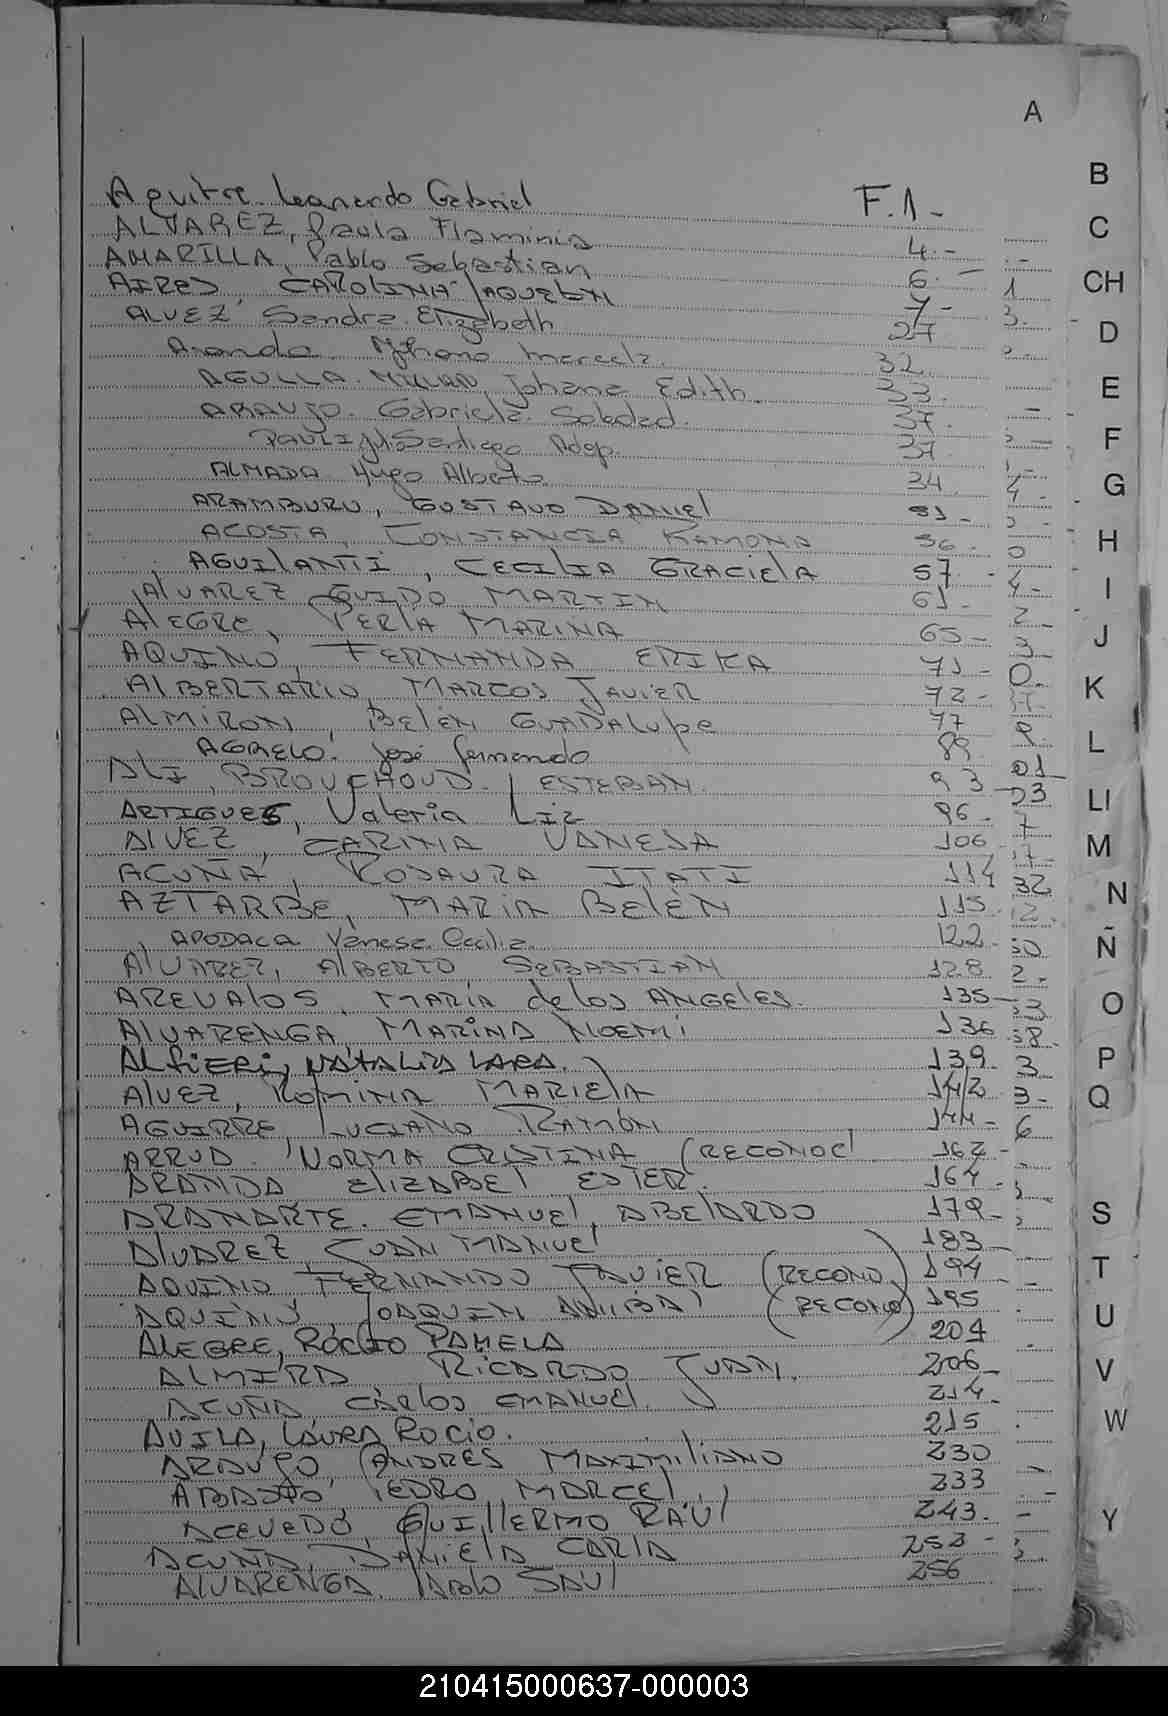 A
Aguirre Leonardo Gabriel F.1-
ALVAREZ, Paula Flaminia 4.-
AMARILLA, Pablo Sebastian 6.-
AIRES, CAROLINA 7-
ALVEZ Sandra Elizabeth 27
Aranda Marcela. 32.
Johana Edith. 33.
ARAUJO. Gabriela Soledad. 37.
Adop. 37.
ALMADA Hugo Alberto 34.
ARAMBURU, GUSTAVO DANIEL 51-
ACOSTA, CONSTANCIA RAMONA 56.
AGUILANTI, CECILIA GRACIELA 57.
ALVAREZ GUIDO MARTIN 61.
ALEGRE, PERLA MARINA 65-
AQUINO, FERNANDA ERIKA 71-
ALBERTARIO, MARCOS JAVIER 72-
ALMIRON, BELEN GUADALUPE 77
AGRELO. José Fernando 89.
ALI, BROUCHOUD. ESTEBAN. 93
ARTIGUES, Valeria Liz 96.
ALVEZ, CARINA VANESA 106
ACUÑA, ROSAURA ITATI 114
AZTARBE, MARIA BELÉN 115
APODACA Vanesa Cecilia 122.
ALVAREZ, ALBERTO SEBASTIAN 128
AREVALOS, MARÍA de los ANGELES. 135
ALVARENGA, MARINA NOEMI 136
ALFIERI, NATALIA LARA. 139
ALVEZ, ROMINA MARIELA 142
AGUIRRE, LUCIANO RAMÓN 144-
NORMA CRISTINA (RECONOC) 162-
ARANDA ELIZABET ESTER. 167.
EMANUEL, ABELARDO 179-
ALVAREZ JUAN MANUEL 183
AQUINO FERNANDO JAVIER (RECONO) 194
AQUINO, JOAQUIN ANIBAL (RECONO) 195
ALEGRE, ROCIO PAMELA 204
ALMIRA RICARDO JUAN. 206
ACUÑA CARLOS EMANUEL. 214.
AVILA, LAURA ROCIO. 215
ARAUJO, ANDRES MAXIMILIANO 230
PEDRO MARCEL 233
ACEVEDO, GUILLERMO RAÚL 243.
ACUÑA, DANIELA CARLA 253-
ALVARENGA, PABLO SAUL 256
B
C
CH
D
E
F
G
H
I
J
K
L
Ll
M
N
Ñ
O
P
Q
S
T
U
V
W
Y
210415000637-000003